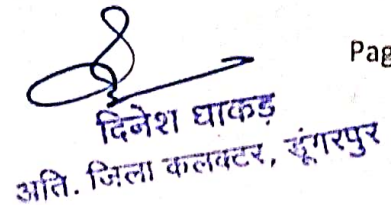 Pag
दिनेश धाकड़
अति. जिला कलक्टर, डूंगरपुर